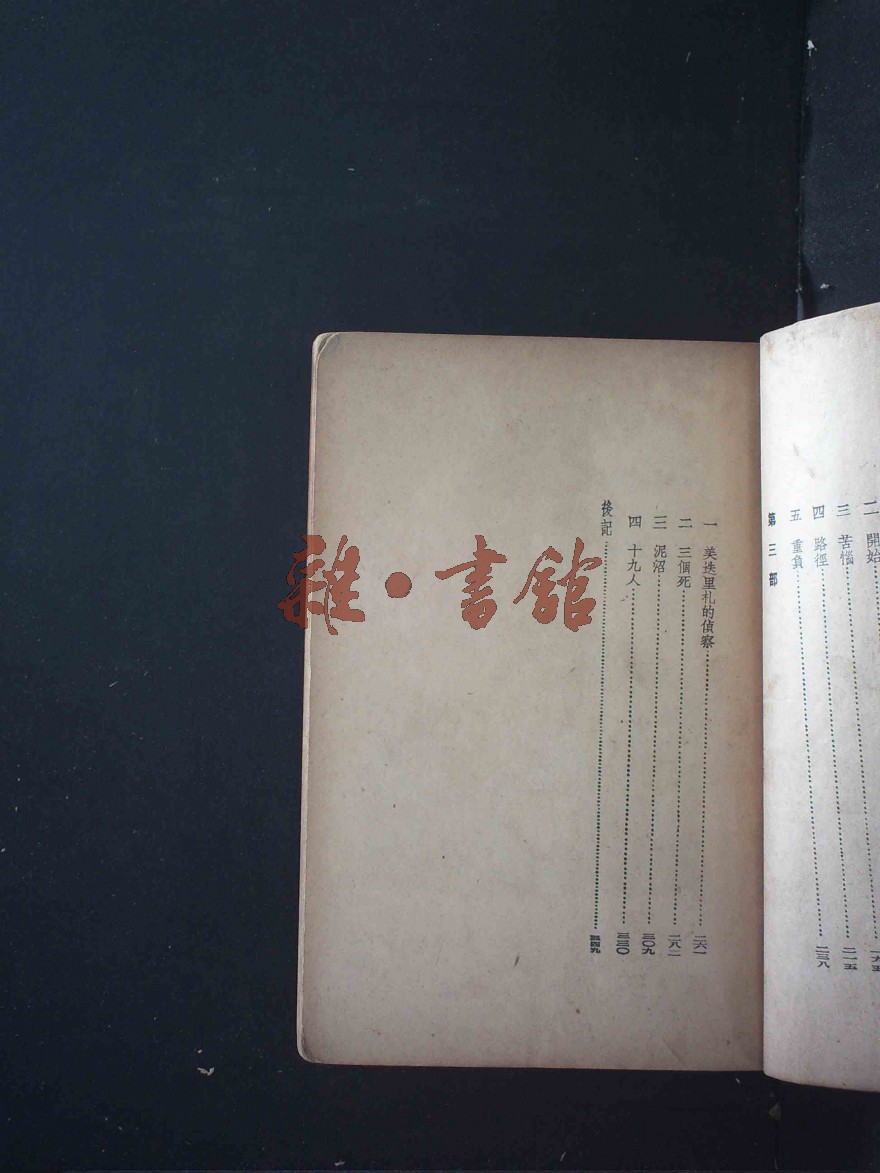 二 開始 一九五
三 苦惱 二一五
四 路徑 二三八
五 重負
第三部
一 美迭里札的偵察 二六一
二 三個死 二八二
三 泥沼 三〇九
四 十九人 三三〇
後記 三四九
雜·書館